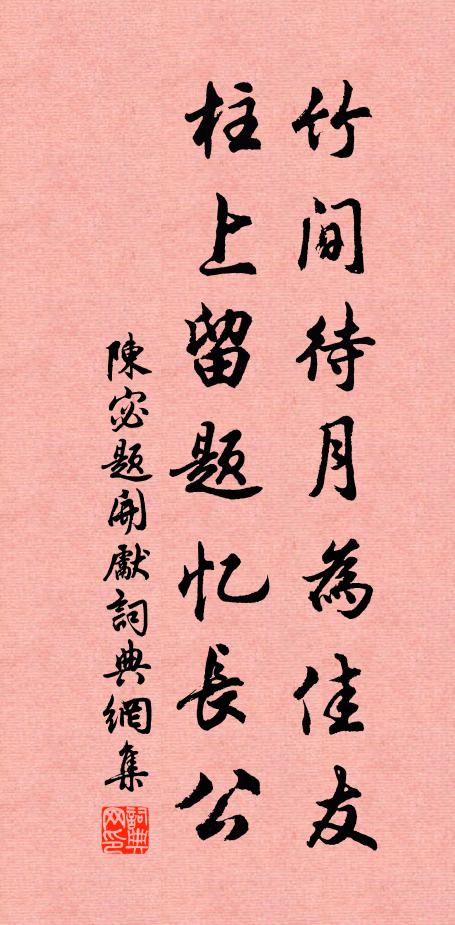 竹间待月為佳友
柱上留题忆長公
陳宓题開獻詞典網集
詞典网印